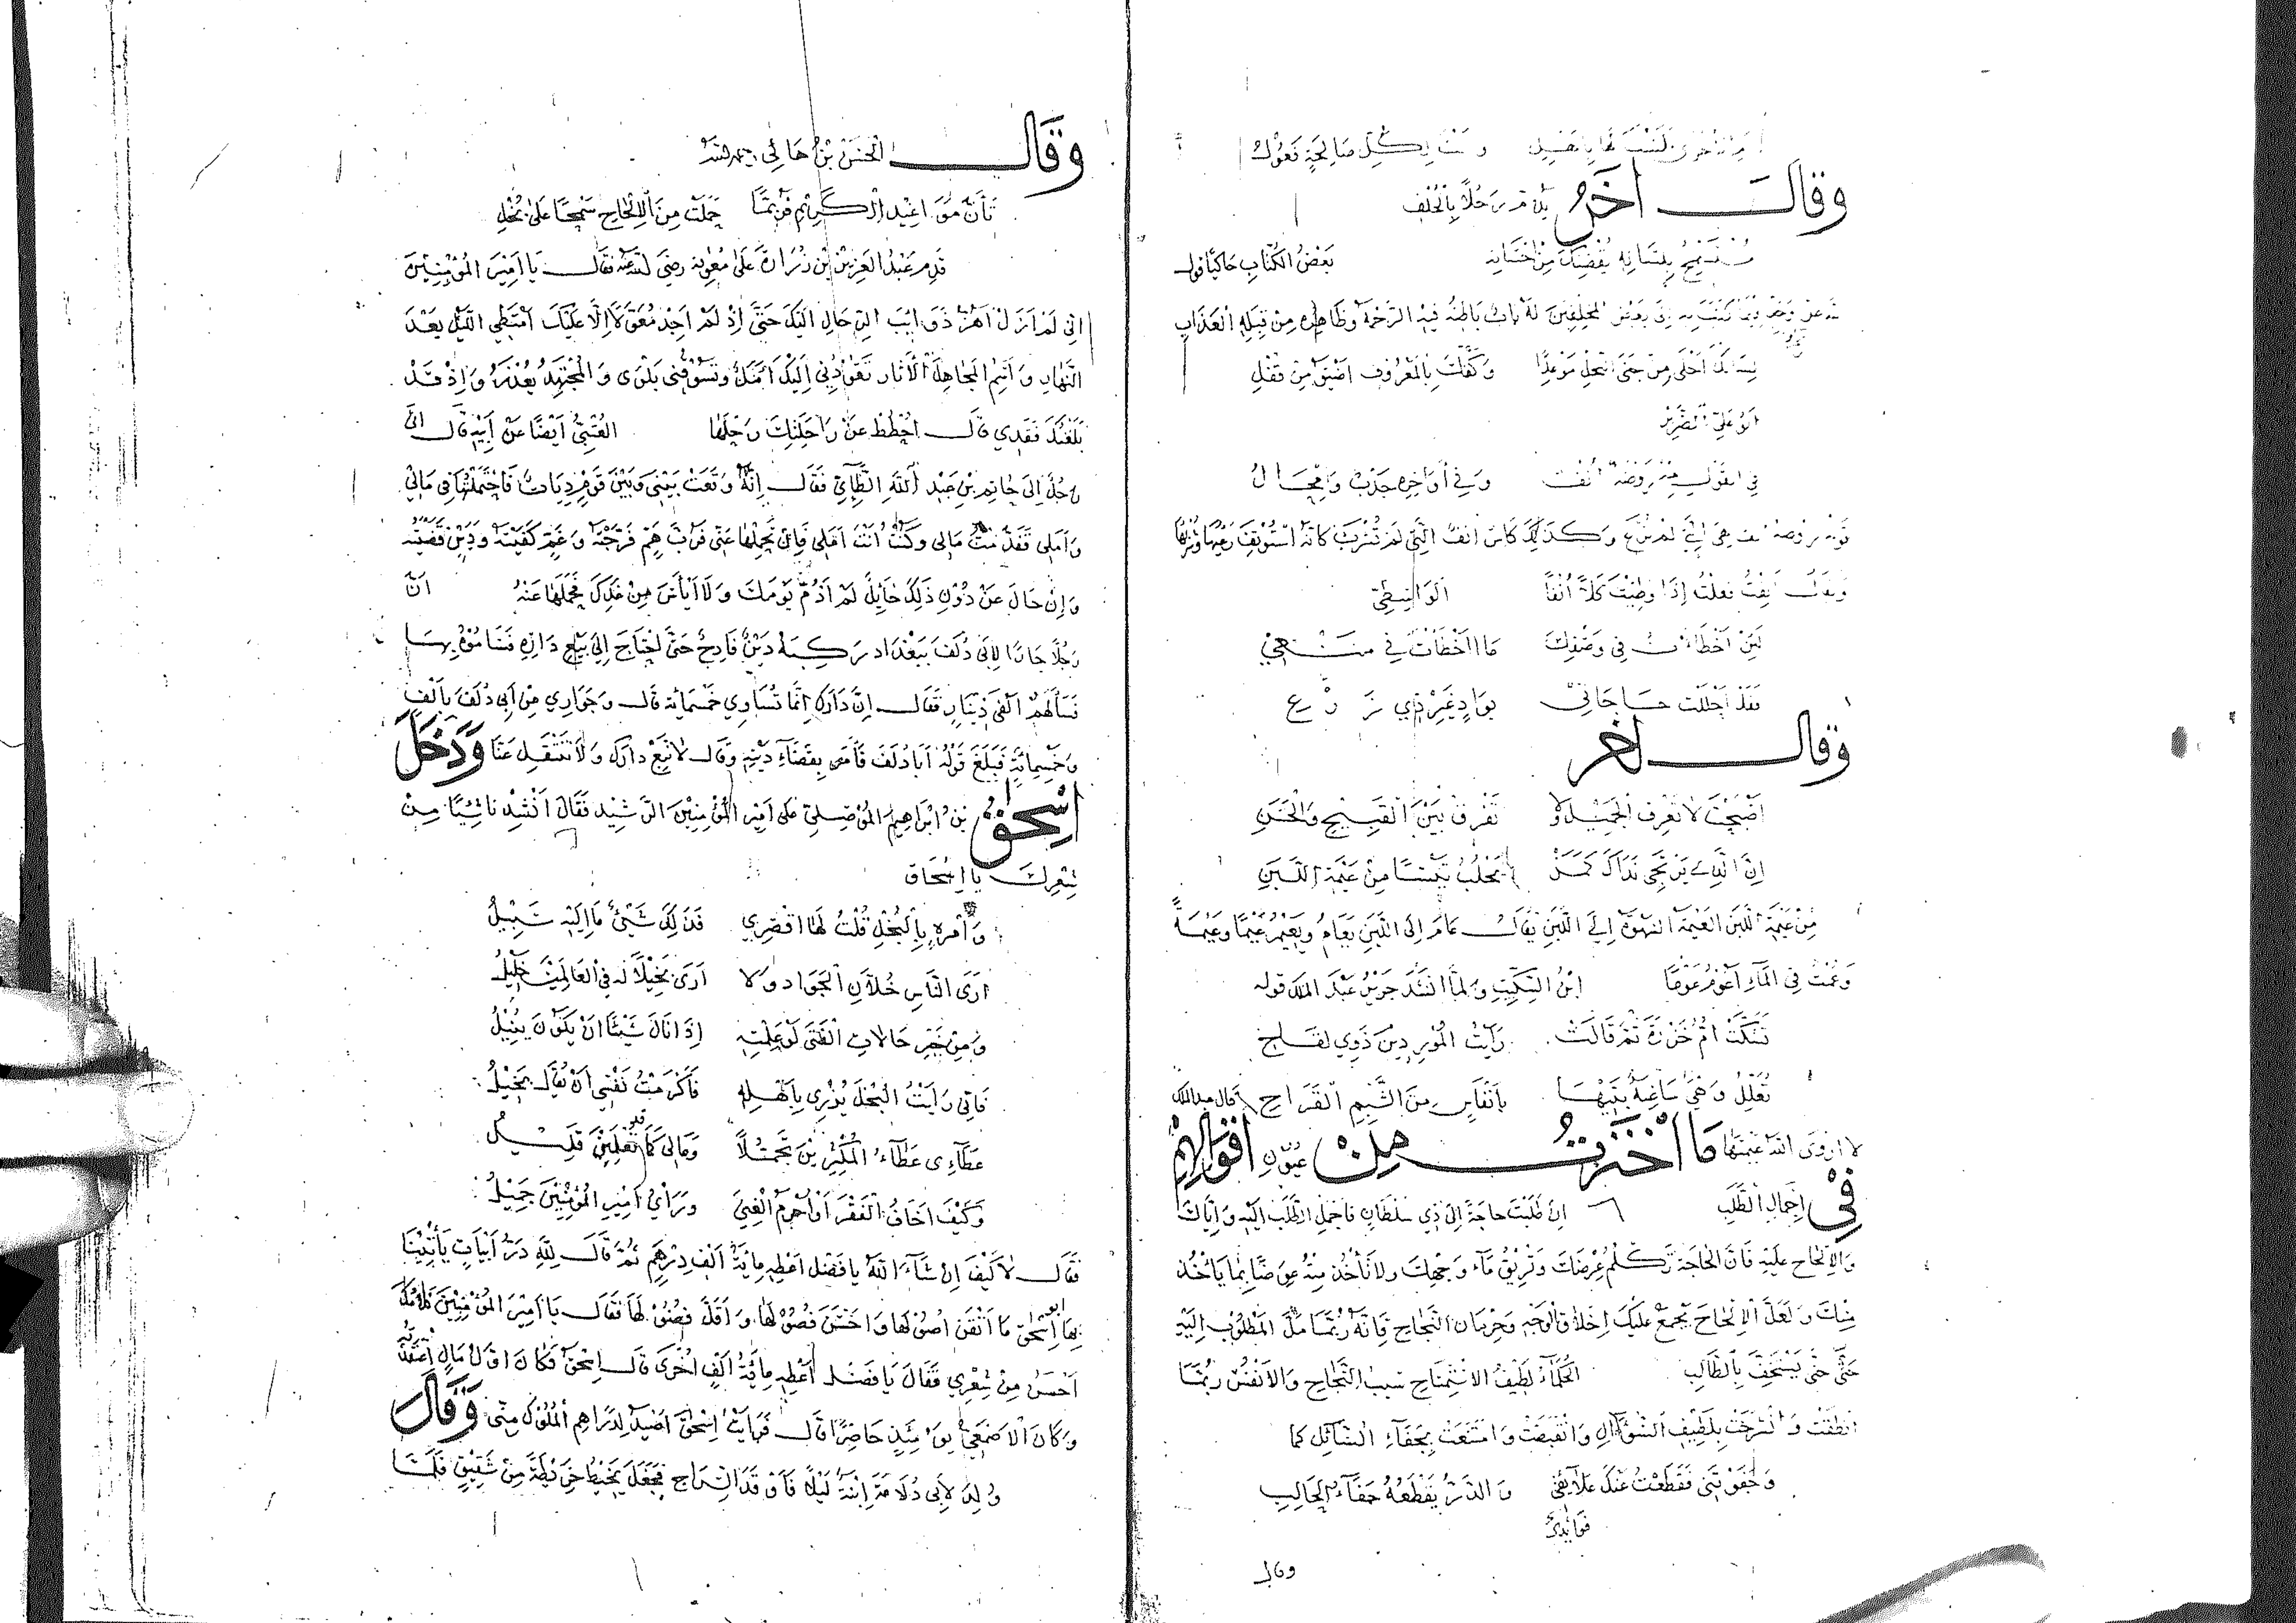 وأنت لكل صالحة تعوك
وقال آخر يذم رجلا بالخلف
بلسانه يقضيك من احسانه بعض الكتاب حاكيا قوله
له باب باطنه فيه الرحمة وظاهره من قبله العذاب
لسانك احلى من جنى النحل موعدا وكفك بالمعروف اضيق من قفل
ابو علي الضرير
في القول منه روضة انف وفي أواخره جدب وامحال
روضة انف هي التي لم ترع وكذلك كاس انف التي لم تشرب كانه استونف رعيها وشربها
ويقال انف اذا وطئت كلأ أنفا الواسطي
لئن اخطأت في وصفك ما اخطأت في منعي
فقد احللت حاجاتي بواد غير ذي زرع
وقال آخر
اصبحت لا تعرف الجميل ولا تفرق بين القبيح والحسن
ان الذي يرتجي نداك كمن يحلب تيسا من عيمة اللبن
من عيمة اللبن العيمة الشهوة الى اللبن يقال عام الى اللبن يعام ويعيم عيما وعيمة
وعمت في الماء اعوم عوما ابن السكيت ولما انشد جرير عبد الملك قوله
تشكت ام حزرة ثم قالت رأيت الموردين ذوي لقاح
تعلل وهي ساغبة بنيها بانفاس من الشبم القراح قال عبد الملك
لا اروى الله عيمتها ما اخترت من عيون اقوالهم
في اجمال الطلب ان طلبت حاجة الى ذي سلطان فاجمل الطلب اليه واياك
والالحاح عليه فان الحاجة تكلم عرضك وتريق ماء وجهك ولا تأخذ منه عوضا بما يأخذ
منك ولعل الالحاح يجمع عليك اخلاق الوجه وحرمان النجاح فانه ربما مل المطلوب اليه
حتى يستخف بالطالب الحكماء لطيف الاستمناح سبب النجاح والانفس ربما
انطلقت وانشرحت بلطيف السؤال وانقبضت وامتنعت بجفاء السائل كما
وجفوتني فقطعت عنك علائقي والدر يقطعه جفاء الحالب
فوائدي
وقال
وقال الحسن بن هانئ رحمه الله
تأن مواعيد الكرام فربما حملت من الالحاح سمحا على بخل
قدم عبد العزيز بن زرارة على معوية رضي الله عنه فقال يا امير المؤمنين
اني لم ازل اهز ذوائب الرحال اليك حتى اذ لم اجد معولا الا عليك امتطي الليل بعد
النهار واسم المجاهل الآثار تقودني اليك وتسوقني بلوى والمجتهد يعذر واذ قد
بلغتك فقدي قال احطط عن راحلتك رحلها العتبي ايضا عن ابيه قال اتى
رجل الى حاتم بن عبد الله الطائي فقال انه وقعت بيني وبين قوم ديات فاحتملتها في مالي
واملي فقدمت مالي وكنت انت املي فان تحملها عني فرب هم فرجته وغم كفيته ودين قضيته
وان حال عن دون ذلك حايل لم اذم يومك ولا ايأس من غدك فحملها عنه ان
رجلا جارا لابي دلف ببغداد ركبه دين فادح حتى احتاج الى بيع داره فساموه بها
فسألهم الفى دينار فقال ان دارك انما تساوي خمسمائة قال وجواري من ابي دلف بالف
وخمسمائة فبلغ قوله ابا دلف فأمر بقضاء دينه وقال لا تبع دارك ولا تنتقل عنا ودخل
اسحق بن ابراهيم الموصلي على امير المؤمنين الرشيد فقال انشدنا شيئا من
شعرك يا اسحاق
وآمرة بالبخل قلت لها اقصري فذلك شيئ ما اليه سبيل
ارى الناس خلان الجواد ولا ارى بخيلا له في العالمين خليل
ومن خير حالات الفتى لو علمته اذا نال شيئا ان يكون ينيل
فاني رأيت البخل يزري باهله فأكرمت نفسي ان يقال بخيل
عطاءي عطاء المكثرين تجملا ومالي كما قد تعلمين قليل
وكيف اخاف الفقر او احرم الغنى ورأي امير المؤمنين جميل
فقال لا كيف ان شاء الله يا فضل اعطه مائة الف درهم ثم قال لله در ابيات يأتينا
بها ابو اسحق ما اتقن اصولها واحسن فصولها واقل فضولها فقال يا امير المؤمنين كلامك
احسن من شعري فقال يا فضل اعطه مائة الف اخرى قال اسحق فكان اول مال اعتقدته
وكان الاصمعي يومئذ حاضرا قال فرأيت اسحق اصيد لدراهم الملوك مني وقال
ولد لابي دلامة ابنة ليلا فاوقد السراج فجعل يخيط خريطة من شقيق فلما